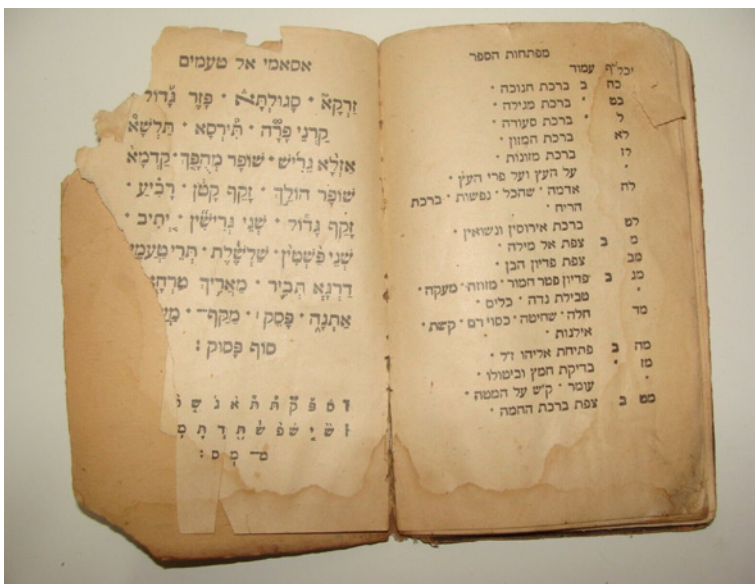 מפתחות הספר
עמוד
כה ב ברכת חנוכה ·
כט · ברכת מגילה ·
ל · ברכת סעודה ·
לא ברכת המזון ·
לז ברכת מזונות ·
· על העץ ועל פרי העץ ·
לח אדמה · שהכל · נפשות · ברכת
הריח ·
לט ברכת אירוסין ונשואין ·
מ ב צפת אל מילה ·
מב צפת פדיון הבן ·
מג ב פדיון פטר חמור · מזוזה · מעקה ·
· טבילת נדה · כלים ·
מד חלה · שחיטה · כסוי דם · קשת ·
אילנות ·
מה ב פתיחת אליהו ז״ל ·
מז · בדיקת חמץ וביטולו ·
· עומר · ק״ש על המטה ·
מט ב צפת ברכת החמה ·
אסאמי אל טעמים
זַרְקָא · סְגוּלְתָּא · פָּזֵר גָּדוֹל
קַרְנֵי פָרָה · תִּירְסָא · תַּלְשָׁא
אַזְלָא גְרִישׁ · שׁוֹפָר מְהֻפָּךְ · קַדְמָא
שׁוֹפָר הוֹלֵךְ · זָקֵף קָטֹן · רָבִיעַ
זָקֵף גָּדוֹל · שְׁנֵי גְרִישִׁין · יְתִיב ·
שְׁנֵי פַשְׁטִין · שַׁלְשֶׁלֶת · תְּרֵי טַעֲמֵי
דַּרְגָּא תְּבִיר · מַאֲרִיךְ טַרְחָא
אַתְנָח · פָּסֵק · מַקֵּף
סוֹף פָּסוּק :